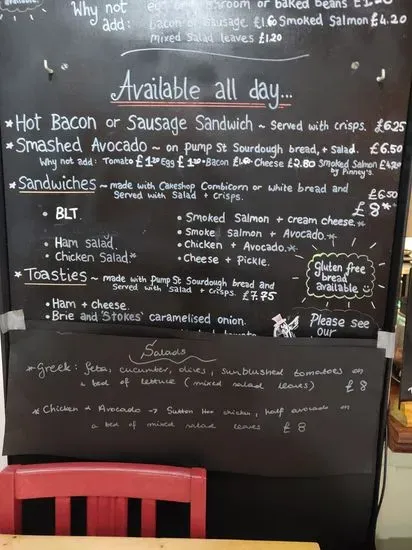 available.
Why not egg room or baked beans
add: bacon or sausage £1.60 Smoked Salmon £4.20
mixed Salad leaves £1.20
Available all day...
* Hot Bacon or Sausage Sandwich ~ Served with crisps. £6.25
* Smashed Avocado ~ on Pump St Sourdough bread, + Salad. £6.50
Why not add: Tomato £1.20 Egg Bacon Cheese £2.80 Smoked Salmon £4.20
by Pinney's.
* Sandwiches ~ made with Cakeshop Combicorn or white bread and £6.50
Served with Salad + crisps. £8*
• BLT.
• Smoked Salmon + cream cheese.*
• Smoke salmon + Avocado.*
• Ham salad.
• Chicken + Avocado.*
• Chicken Salad*
• Cheese + Pickle.
* Toasties ~ made with Pump St Sourdough bread and
Served with Salad + crisps. £7.75
gluten free
bread
available
• Ham + Cheese.
• Brie and 'Stokes' caramelised onion.
Please see
our
Salads
* Greek: feta, cucumber, olives, sunblushed tomatoes on
a bed of lettuce (mixed salad leaves) £8
* Chicken & Avocado → Sutton Hoo chicken, half avocado on
a bed of mixed salad leaves £8